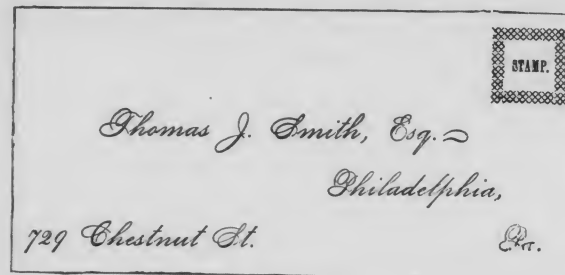 STAMP.
Thomas J. Smith, Esq.
Philadelphia,
729 Chestnut St. Pa.